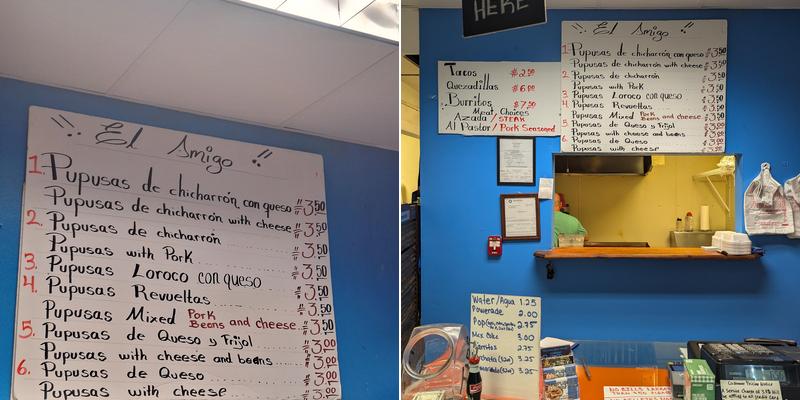 El Amigo
1. Pupusas de chicharrón con queso 3.50
Pupusas de chicharrón with cheese 3.50
2. Pupusas de chicharrón 3.50
Pupusas with Pork
3. Pupusas Loroco con queso 3.50
4. Pupusas Revueltas 3.50
Pupusas Mixed Pork Beans and cheese 3.50
5. Pupusas de Queso y Frijol 3.00
Pupusas with cheese and beans 3.00
6. Pupusas de Queso 3.00
Pupusas with cheese 3.00
HERE
El Amigo
1. Pupusas de chicharrón con queso $3.50
Pupusas de chicharrón with cheese $3.50
2. Pupusas de chicharrón $3.50
Pupusas with Pork
3. Pupusas Loroco con queso $3.50
4. Pupusas Revueltas
Pupusas Mixed Pork Beans and cheese $3.50
5. Pupusas de Queso y Frijol
Pupusas with cheese and beans
6. Pupusas de Queso
Pupusas with cheese
Tacos $2.50
Quezadillas $6.00
Burritos $7.00
Meat Choices
Azada / STEAK
Al Pastor / Pork Seasoned
Water/Agua 1.25
Powerade 2.00
Pop 2.75
Mex Coke 3.00
Jarritos 2.75
3.25
3.25
NO BILLS LARGER
Customer Pricing Notice
A Service Charge of